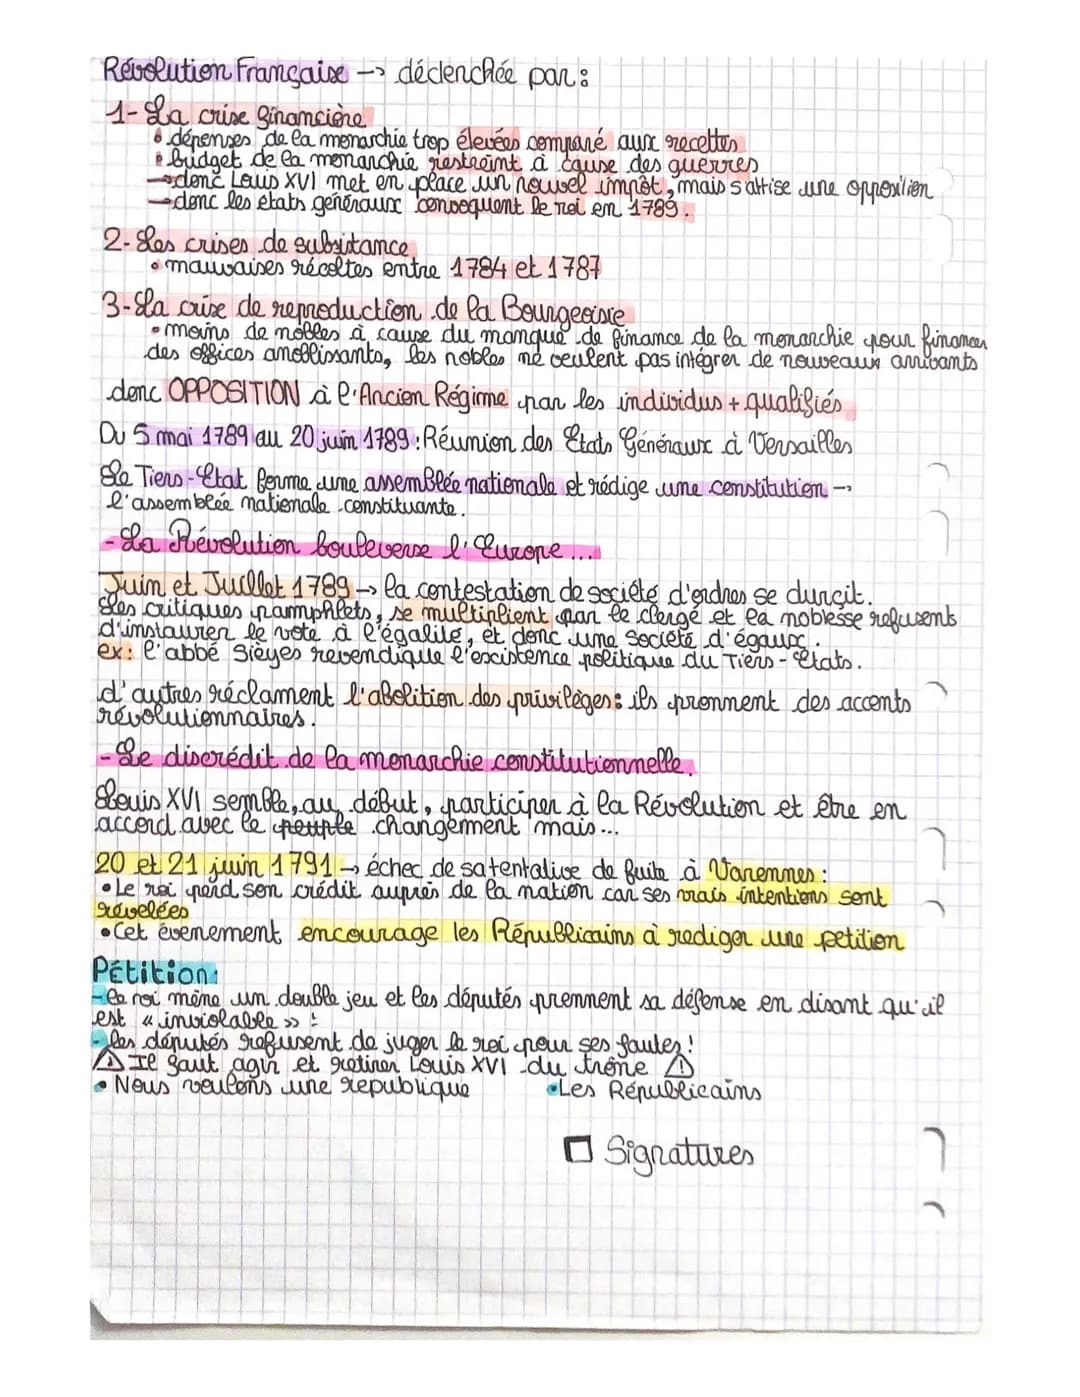 Révolution Française → déclenchée par :
1- La crise financière
• dépenses de la monarchie trop élevées comparé aux recettes
• budget de la monarchie restreint à cause des guerres
→ donc Louis XVI met en place un nouvel impôt, mais s'attise une opposition
→ donc les états généraux convoquent le roi en 1789.
2- Les crises de subsistance
• mauvaises récoltes entre 1784 et 1787
3- La crise de reproduction de la Bourgeoisie
• moins de nobles à cause du manque de finance de la monarchie pour financer
des offices anoblissants, les nobles ne veulent pas intégrer de nouveaux arrivants
donc OPPOSITION à l'Ancien Régime par les individus + qualifiés
Du 5 mai 1789 au 20 juin 1789 : Réunion des Etats Généraux à Versailles
Le Tiers-Etat forme une assemblée nationale et rédige une constitution →
l'assemblée nationale constituante.
- La Révolution bouleverse l'Europe ...
Juin et Juillet 1789 → la contestation de société d'ordres se durçit.
Les critiques pamphlets, se multiplient par le clergé et la noblesse refusents
d'instaurer le vote à l'égalité, et donc une société d'égaux.
ex : l'abbé Sieyes revendique l'existence politique du Tiers-Etats.
d'autres réclament l'abolition des privilèges : ils pronment des accents
révolutionnaires.
- Le discrédit de la monarchie constitutionnelle.
Louis XVI semble, au début, participer à la Révolution et être en
accord avec le peuple changement mais...
20 et 21 juin 1791 → échec de sa tentative de fuite à Varennes :
• Le roi perd son crédit auprès de la nation car ses vrais intentions sont
révélées
• Cet évenement encourage les Républicains à rediger une petition
Pétition :
- Le roi mène un double jeu et les députés prennent sa défense en disant qu'il
est « inviolable » !
- les députés refusent de juger le roi pour ses fautes !
⚠ Il faut agir et retirer Louis XVI du trône ⚠
• Nous voulons une republique • Les Républicains
□ Signatures